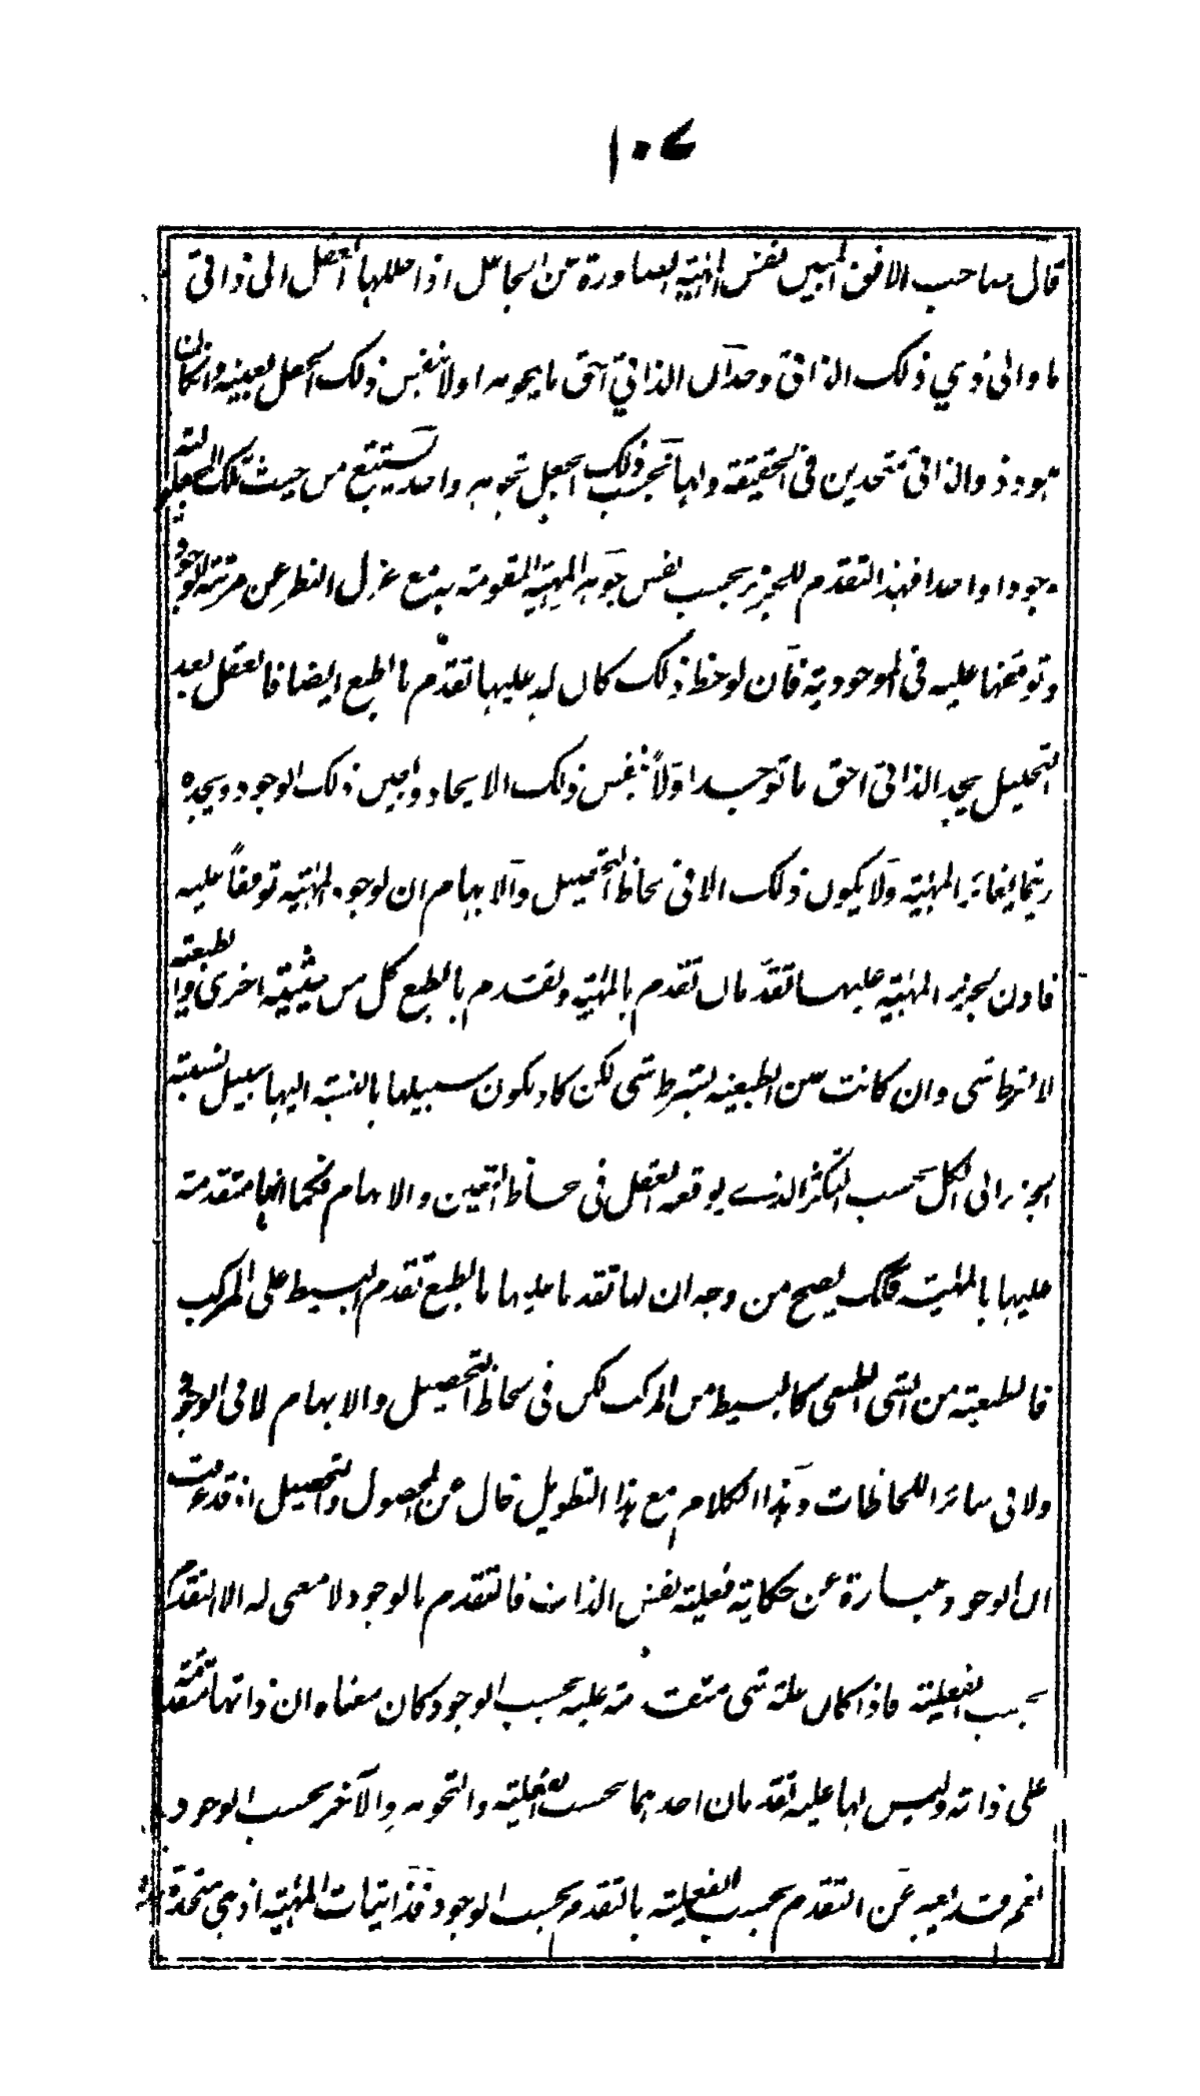 ١٠٧
قال صاحب الافق المبين نفس المهية الصادرة عن الجاعل اذا حللها العقل الى ذاتى
ما والى ذي ذلك الذاتى وجد ان الذاتي احق ما يجوهر اولا بنفس ذلك الجعل بعينه وان كان
هو وذو الذاتى متحدين فى الحقيقة ولهما بحسب ذلك الجعل تجوهر واحد يستتبع من حيث تلك المجعولية
وجودا واحدا فهذا التقدم للجزء بحسب نفس جوهر المهية المتقومة به مع عزل النظر عن مرتبة الوجود
وتوقفها عليه فى الموجودية فان لوحظ ذلك كان له عليها تقدم بالطبع ايضا فالعقل بعد
التحليل يجد الذاتى احق ما توجد اولاً بنفس ذلك الايجاد وبعين ذلك الوجود ويجده
ربما يغاير المهية ولا يكون ذلك الا فى لحاظ التحصيل والابهام ان لوجود المهية توقفاً عليه
فاذن لجزء المهية عليها تقدمان تقدم بالمهية وتقدم بالطبع كل من حيثية اخرى والطبيعة
لا بشرط شى وان كانت عين الطبيعة بشرط شى لكن كاد يكون سبيلها بالنسبة اليها سبيل نسبة
الجزء الى الكل بحسب التكثر الذى يوقعه العقل فى لحاظ التعيين والابهام فكما انها متقدمة
عليها بالمهية فكك يصح من وجه ان لها تقدما عليها بالطبع تقدم البسيط على المركب
فالطبيعة من الشى الطبيعى كالبسيط من المركب لكن فى لحاظ التحصيل والابهام لا فى الوجود
ولا فى سائر اللحاظات وهذا الكلام مع هذا التطويل خال عن المحصول والتحصيل اذ قد عرفت
ان الوجود عبارة عن حكاية فعلية نفس الذات فالتقدم بالوجود لا معنى له الا التقدم
بحسب الفعلية فاذا كان علة شى متقدمة عليه بحسب الوجود كان معناه ان ذاتها متقدمة
على ذاته وليس لها عليه تقدمان احدهما بحسب الفعلية والتجوهر والآخر بحسب الوجود
نعم قد يعبر عن التقدم بحسب الفعلية بالتقدم بحسب الوجود فذاتيات المهية اذ هي متحدة